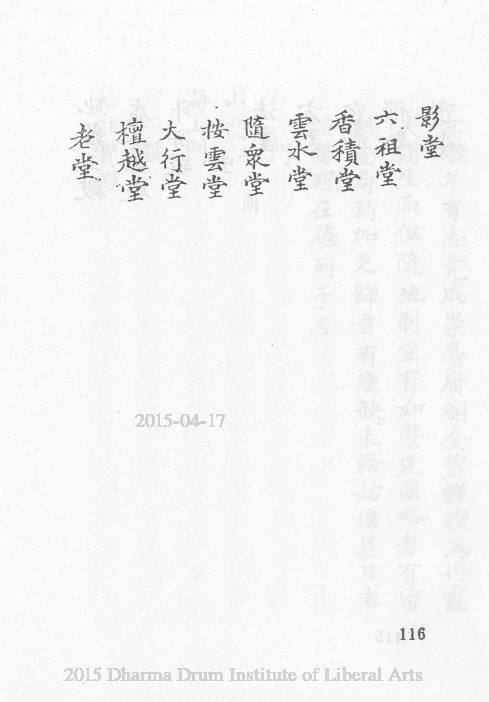 影堂
六祖堂
香積堂
雲水堂
隨眾堂
按雲堂
大行堂
檀越堂
老堂
2015-04-17
116
2015 Dharma Drum Institute of Liberal Arts